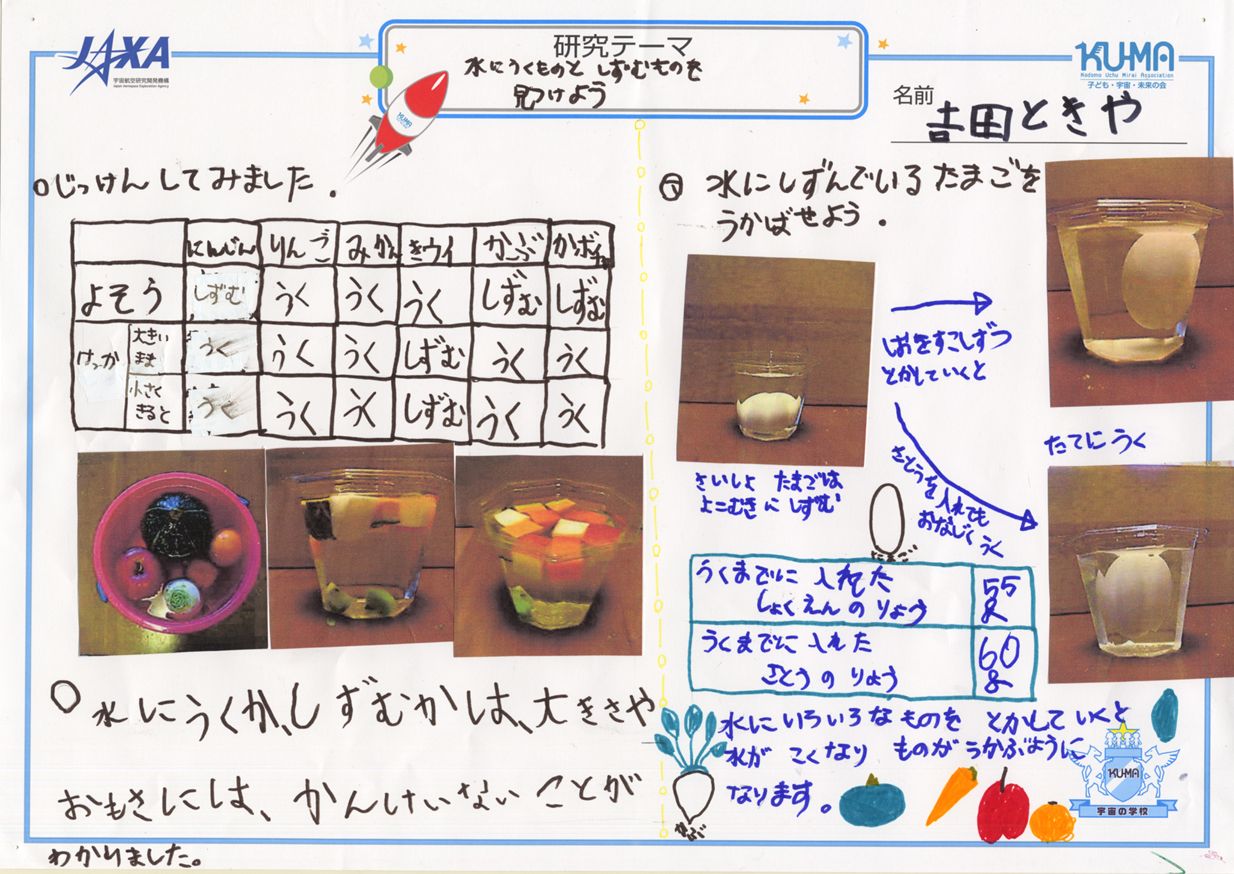 JAXA
宇宙航空研究開発機構
Japan Aerospace Exploration Agency
研究テーマ
水にうくものと しずむものを
見つけよう
KUMA
KU-MA
Kodomo Uchu Mirai Association
子ども・宇宙・未来の会
名前 吉田ときや
○じっけんしてみました.
にんじん りんご みかん きウイ かぶ かボチャ
よそう しずむ うく うく うく しずむ しずむ
けっか 大きいまま うく うく うく しずむ うく うく
小さくきると うく うく うく しずむ うく うく
○水にうくか、しずむかは、大きさや
おもさには、かんけいないことが
わかりました。
水にしずんでいるたまごを
うかばせよう.
しおをすこしずつ
とかしていくと
さいしょ たまごは
よこむきに しずむ
たてにうく
さとうを入れても
おなじくうく
たまご
うくまでに 入れた
しょくえんのりょう 55g
うくまでに入れた
さとうのりょう 60g
水にいろいろなものを とかしていくと
水が こくなり ものが うかぶように
なります。
かぶ
KU-MA
宇宙の学校